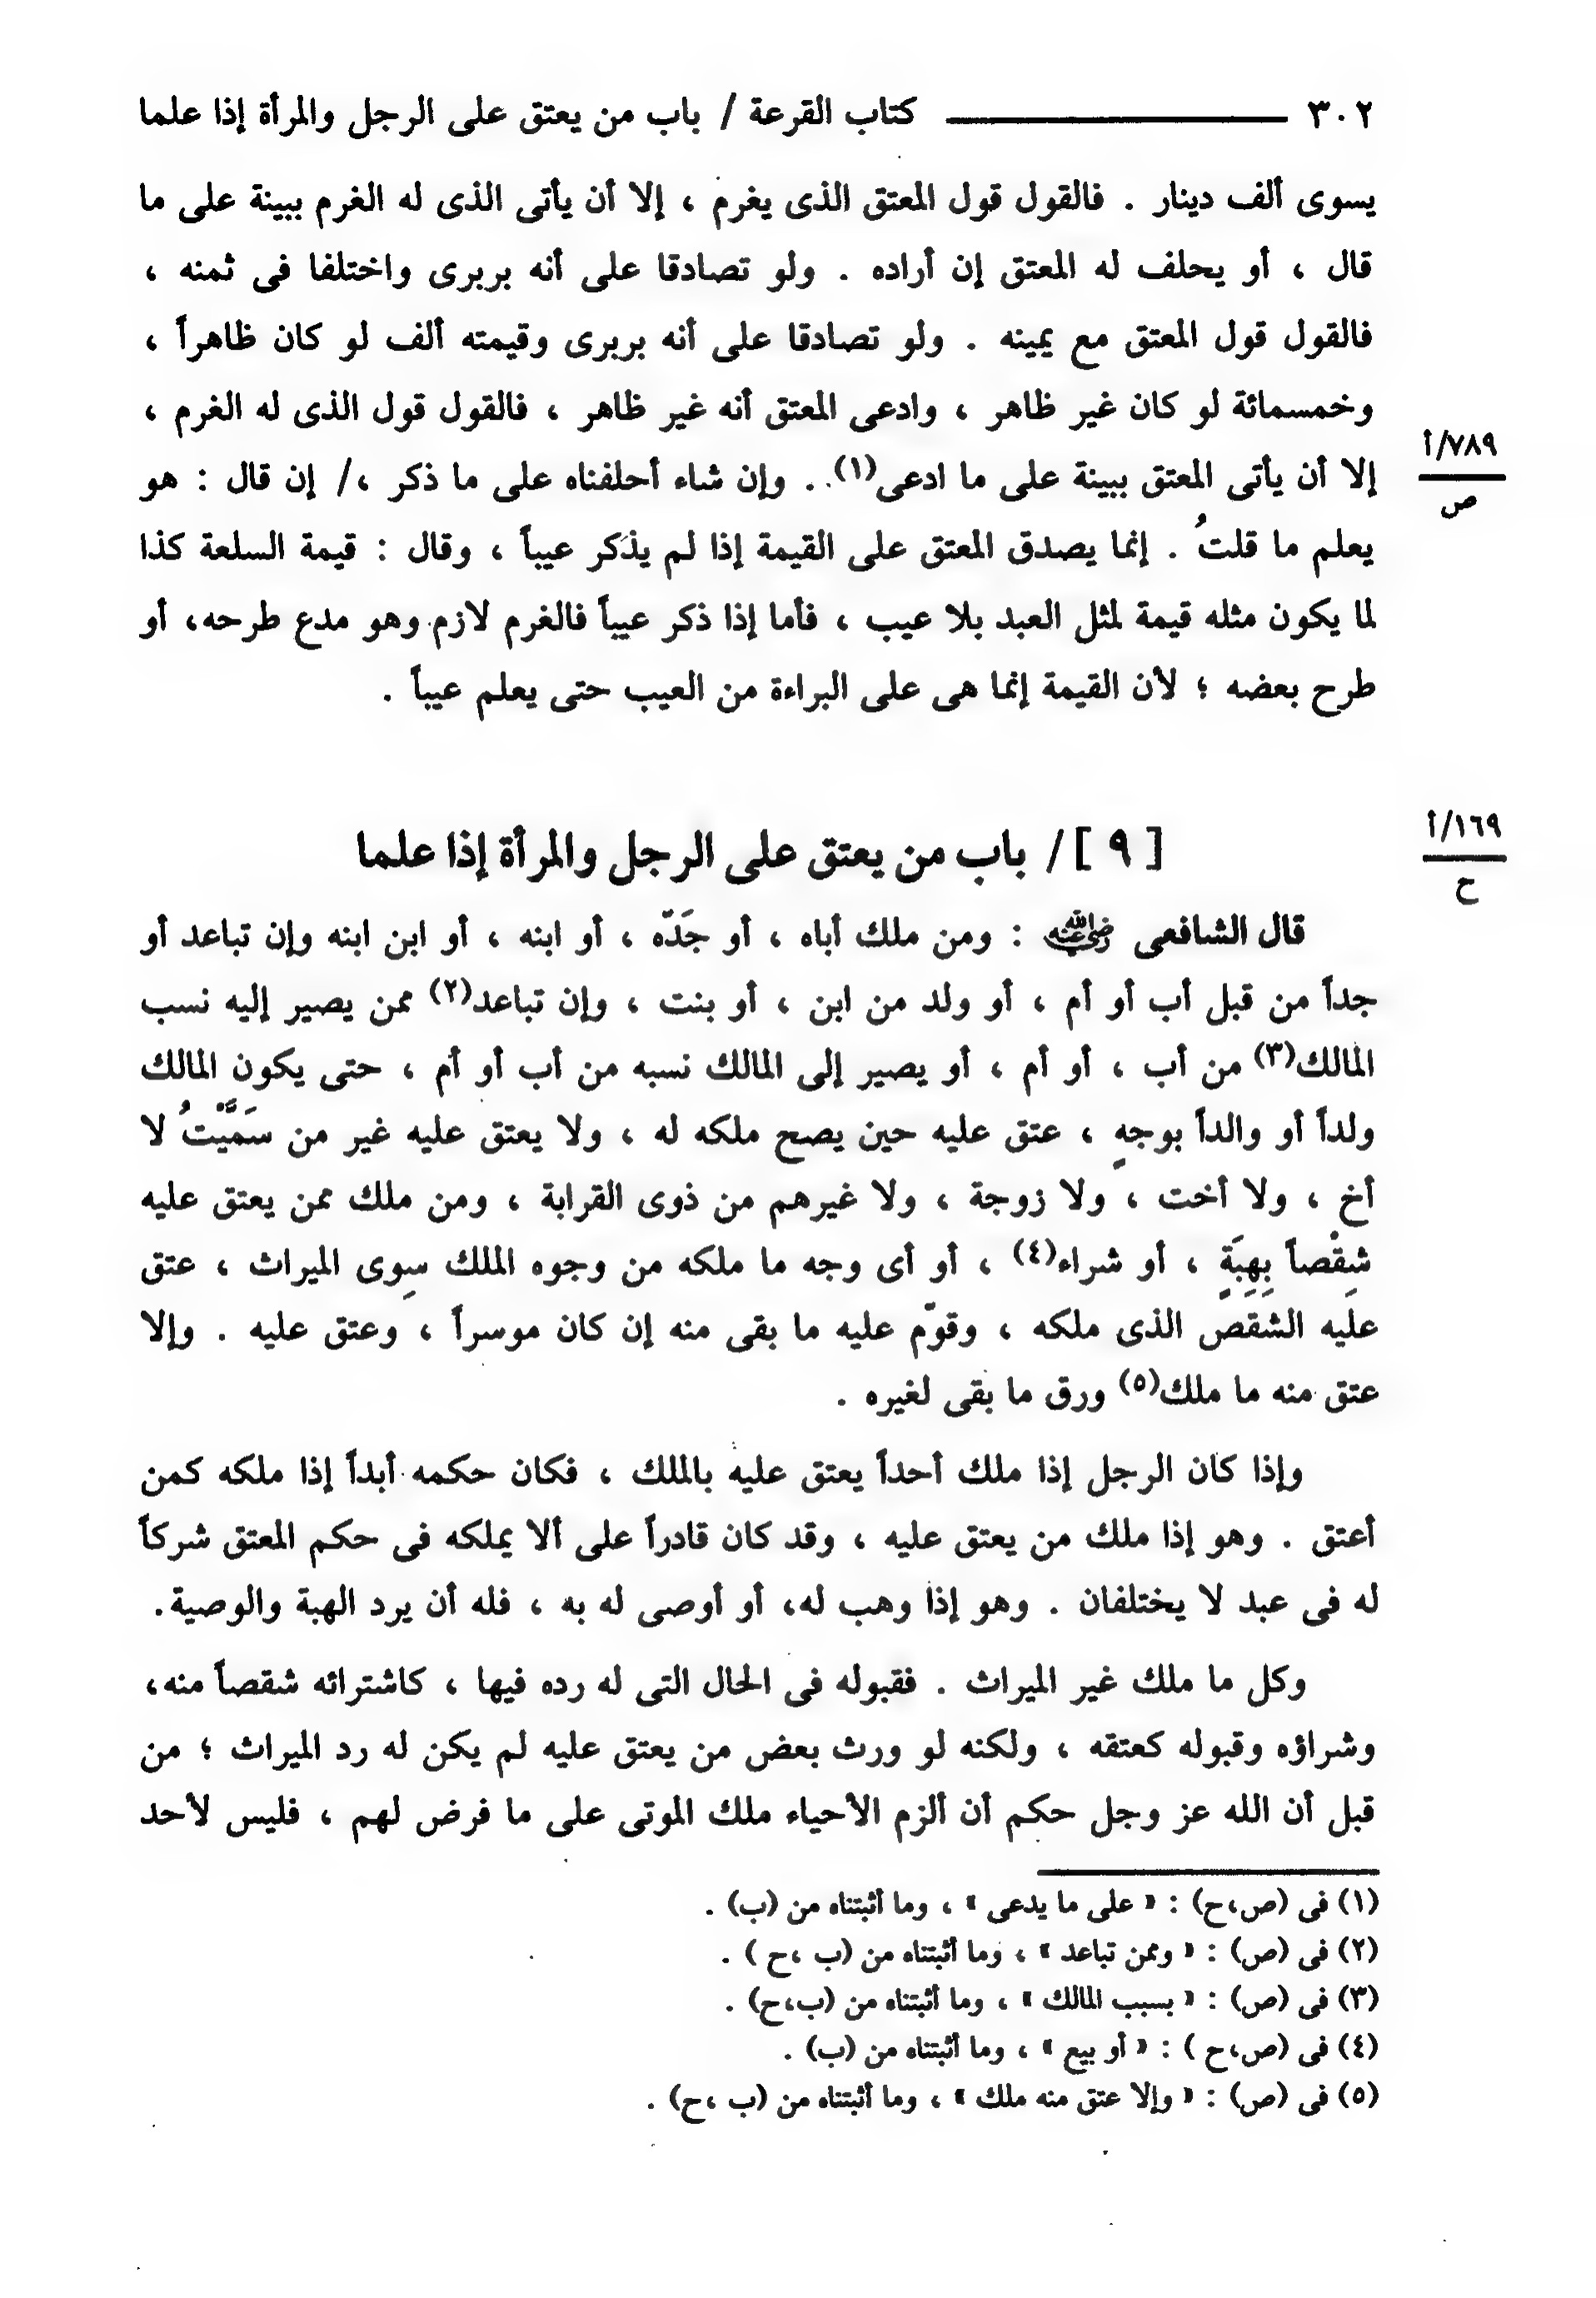 ٣٠٢ ــــــــــــ كتاب القرعة / باب من يعتق على الرجل والمرأة إذا علما
يسوى ألف دينار . فالقول قول المعتق الذى يغرم ، إلا أن يأتى الذى له الغرم ببينة على ما
قال ، أو يحلف له المعتق إن أراده . ولو تصادقا على أنه بربرى واختلفا فى ثمنه ،
فالقول قول المعتق مع يمينه . ولو تصادقا على أنه بربرى وقيمته ألف لو كان ظاهراً ،
وخمسمائة لو كان غير ظاهر ، وادعى المعتق أنه غير ظاهر ، فالقول قول الذى له الغرم ،
٧٨٩/أ
ص
إلا أن يأتى المعتق ببينة على ما ادعى(١) . وإن شاء أحلفناه على ما ذكر ،/ إن قال : هو
يعلم ما قلتُ . إنما يصدق المعتق على القيمة إذا لم يذكر عيباً ، وقال : قيمة السلعة كذا
لما يكون مثله قيمة لمثل العبد بلا عيب ، فأما إذا ذكر عيباً فالغرم لازم وهو مدع طرحه، أو
طرح بعضه ؛ لأن القيمة إنما هى على البراءة من العيب حتى يعلم عيباً .
١٦٩/أ
ح
[ ٩ ] / باب من يعتق على الرجل والمرأة إذا علما
قال الشافعى رضي الله عنه : ومن ملك أباه ، أو جَدّه ، أو ابنه ، أو ابن ابنه وإن تباعد أو
جداً من قبل أب أو أم ، أو ولد من ابن ، أو بنت ، وإن تباعد(٢) ممن يصير إليه نسب
المالك(٣) من أب ، أو أم ، أو يصير إلى المالك نسبه من أب أو أم ، حتى يكون المالك
ولداً أو والداً بوجهٍ ، عتق عليه حين يصح ملكه له ، ولا يعتق عليه غير من سَمَّيْتُ لا
أخ ، ولا أخت ، ولا زوجة ، ولا غيرهم من ذوى القرابة ، ومن ملك ممن يعتق عليه
شِقْصاً بِهِبَةٍ ، أو شراء(٤) ، أو أى وجه ما ملكه من وجوه الملك سِوى الميراث ، عتق
عليه الشقص الذى ملكه ، وقوّم عليه ما بقى منه إن كان موسراً ، وعتق عليه . وإلا
عتق منه ما ملك(٥) ورق ما بقى لغيره .
وإذا كان الرجل إذا ملك أحداً يعتق عليه بالملك ، فكان حكمه أبداً إذا ملكه كمن
أعتق . وهو إذا ملك من يعتق عليه ، وقد كان قادراً على ألا يملكه فى حكم المعتق شركاً
له فى عبد لا يختلفان . وهو إذا وهب له، أو أوصى له به ، فله أن يرد الهبة والوصية.
وكل ما ملك غير الميراث . فقبوله فى الحال التى له رده فيها ، كاشترائه شقصاً منه،
وشراؤه وقبوله كعتقه ، ولكنه لو ورث بعض من يعتق عليه لم يكن له رد الميراث ؛ من
قبل أن الله عز وجل حكم أن ألزم الأحياء ملك الموتى على ما فرض لهم ، فليس لأحد
(١) فى (ص،ح) : « على ما يدعى » ، وما أثبتناه من (ب) .
(٢) فى (ص) : « وممن تباعد » ، وما أثبتناه من (ب ،ح ) .
(٣) فى (ص) : « بسبب المالك » ، وما أثبتناه من (ب،ح) .
(٤) فى (ص،ح ) : « أو بيع » ، وما أثبتناه من (ب) .
(٥) فى (ص) : « وإلا عتق منه ملك » ، وما أثبتناه من (ب ،ح) .